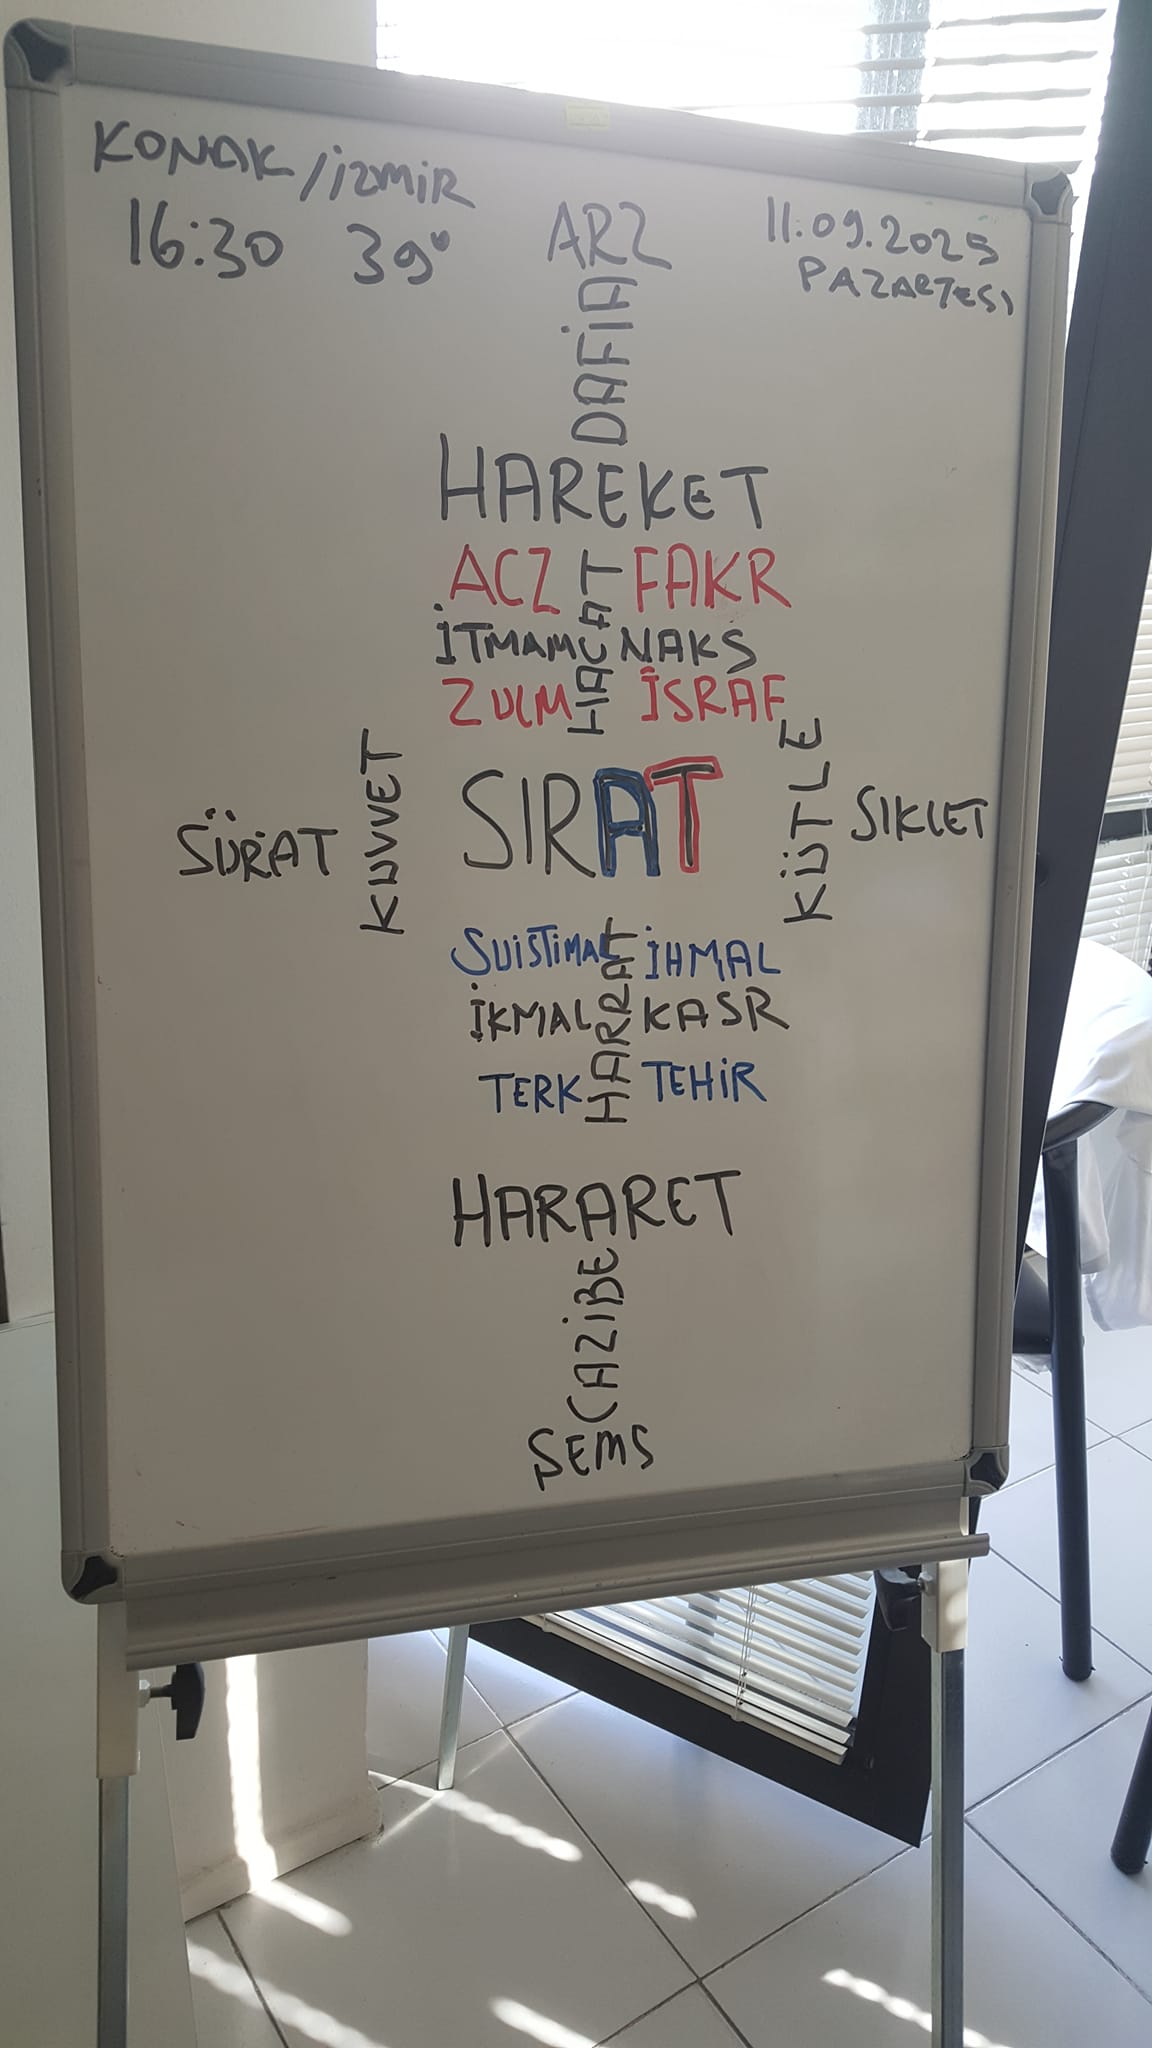 KONAK/İZMİR
16:30 39°
11.09.2025
PAZARTESİ
ARZ
DAFİA
HAREKET
ACZ FAKR
HACAT
İTMAM NAKS
ZULM İSRAF
KUVVET
SÜRAT
SIRAT
KÜTLE
SIKLET
SUİSTİMAL İHMAL
HARRAT
İKMAL KASR
TERK TEHİR
HARARET
CAZİBE
ŞEMS